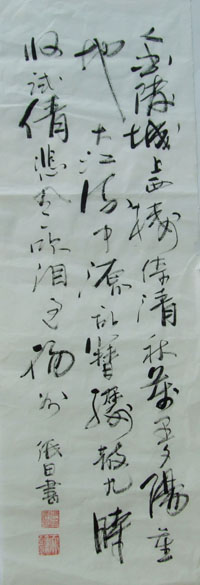 金陵城上西樓倚清秋萬里夕陽垂
地大江流中原亂簪纓散幾時
收試倩悲風吹淚過揚州 張日書